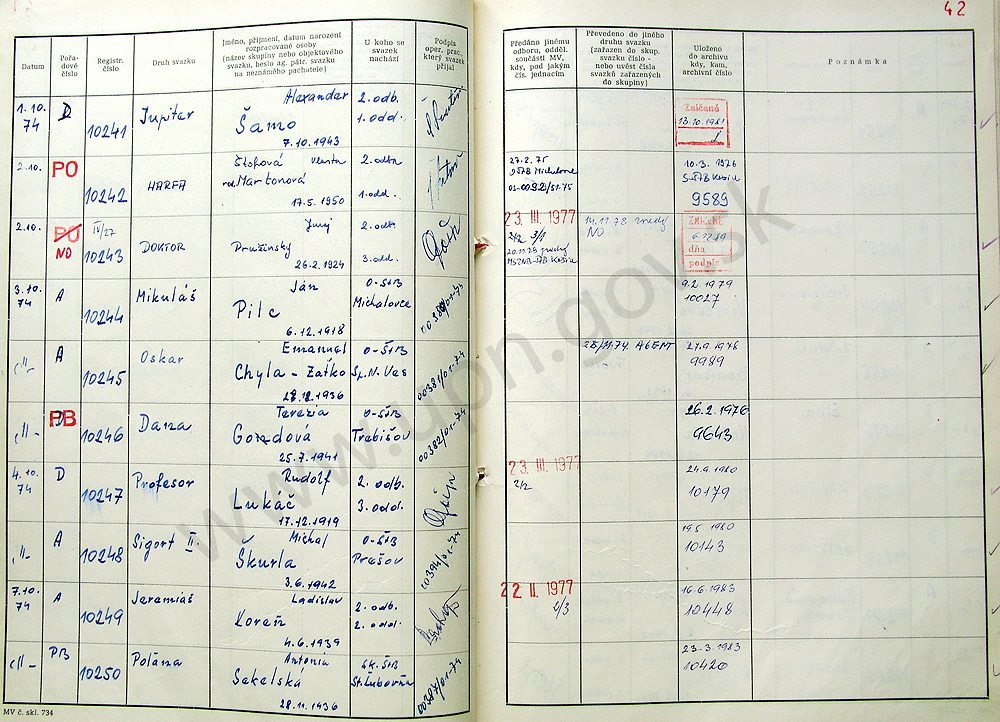 42
Datum
Pořadové číslo
Registr. číslo
Druh svazku
Jméno, příjmení, datum narození
rozpracované osoby
(název skupiny nebo objektového
svazku, heslo ag. pátr. svazku
na neznámého pachatele)
U koho se
svazek
nachází
Podpis
oper. prac.,
který svazek
přijal
Předáno jinému
odboru, odděl.
součásti MV,
kdy, pod jakým
čís. jednacím
Převedeno do jiného
druhu svazku
(zařazen do skup.
svazku číslo -
nebo uvést čísla
svazků zařazených
do skupiny)
Uloženo
do archivu
kdy, kam,
archivní číslo
Poznámka
1.10.
74
D
10241
Jupiter
Alexander
Šamo
7.10.1943
2. odb.
1. odd.
Zničené
13.10.1981
2.10.
PO
10242
HARFA
Vlasta
Martonová
17.5.1950
2. odb.
1. odd.
27.2.75
10.3.1976
9589
2.10.
PO
NO
IV/27
10243
DOKTOR
Juraj
Pružinský
26.2.1924
2. odb.
3. odd.
23. III. 1977
2/2 3/1
14.11.78
NO
dňa
podpis
3.10.
74
A
10244
Mikuláš
Ján
Pilc
6.12.1918
O-ŠtB
Michalovce
9.2.1979
10027
-"-
A
10245
Oskar
Emanuel
Chyla - Zaťko
28.12.1936
O-ŠtB
Sp. N. Ves
00381/01-74
AGENT
9989
-"-
PB
10246
Dana
Terezia
Gondová
25.7.1941
O-ŠtB
Trebišov
00382/01-74
26.2.1976
9643
4.10.
74
D
10247
Profesor
Rudolf
Lukáč
17.12.1919
2. odb.
3. odd.
23. III. 1977
2/2
24.9.1980
10179
-"-
A
10248
Sigort II.
Michal
Škurla
3.6.1942
O-ŠtB
Prešov
00394/01-74
19.5.1980
10143
7.10.
74
A
10249
Jeremiáš
Ladislav
Koreň
4.6.1939
2. odb.
2. odd.
22. II. 1977
2/3
16.6.1983
10448
-"-
PB
10250
Polana
Antonia
Sekelská
28.11.1936
St. Ľubovňa
00387/01-74
23.3.1983
10420
MV č. skl. 734
www.upn.gov.sk